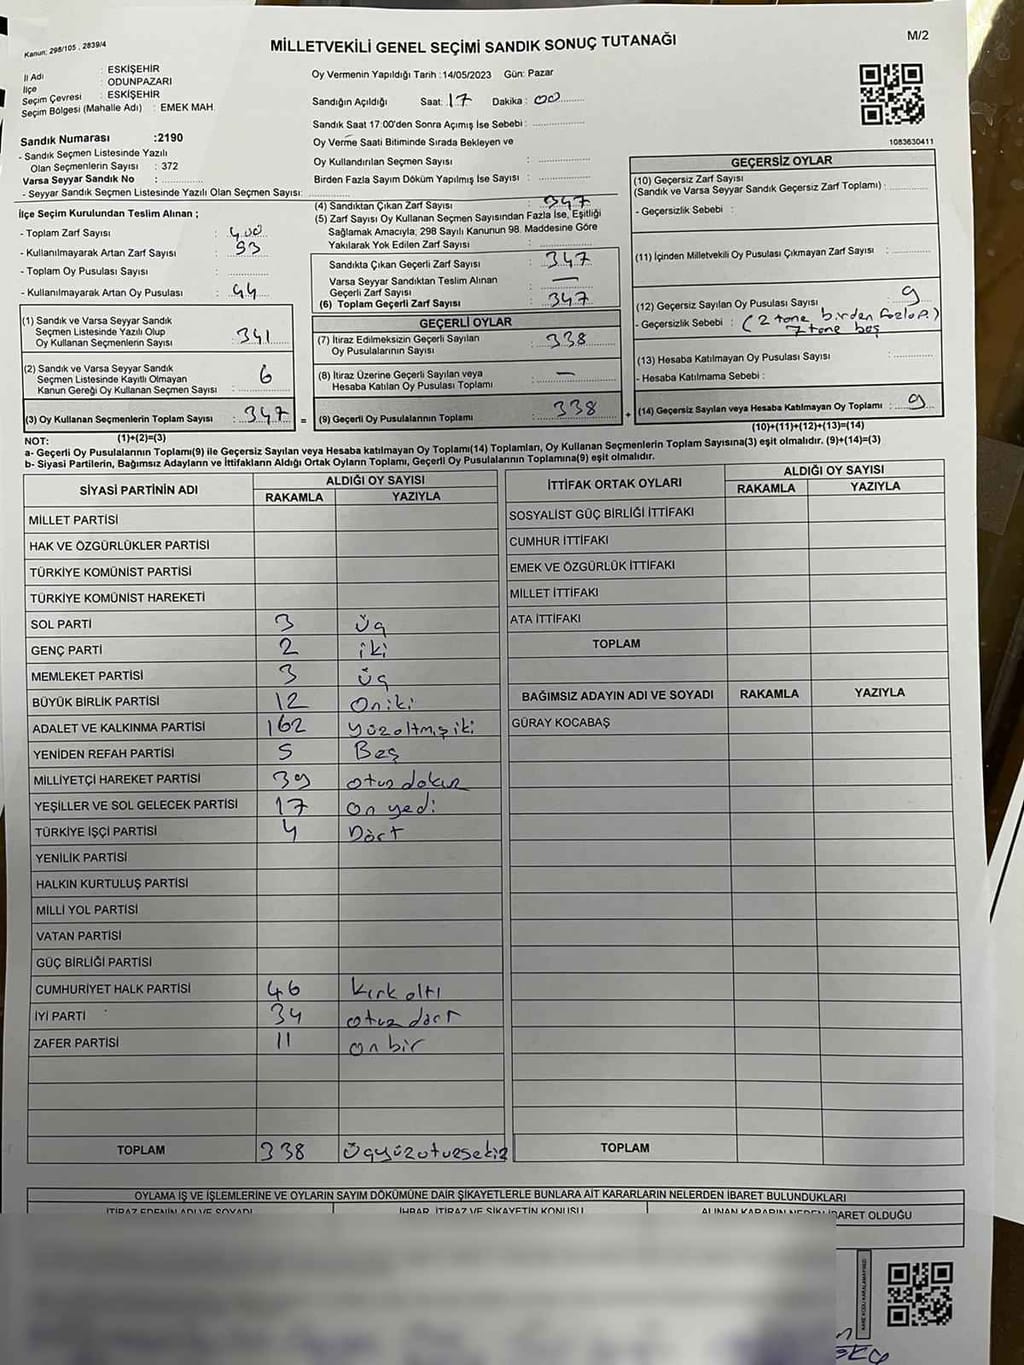 Kanun: 298/105 , 2839/4
MİLLETVEKİLİ GENEL SEÇİMİ SANDIK SONUÇ TUTANAĞI
M/2
İl Adı : ESKİŞEHİR
İlçe : ODUNPAZARI
Seçim Çevresi : ESKİŞEHİR
Seçim Bölgesi (Mahalle Adı) : EMEK MAH.
Sandık Numarası :2190
- Sandık Seçmen Listesinde Yazılı
Olan Seçmenlerin Sayısı : 372
Varsa Seyyar Sandık No :
- Seyyar Sandık Seçmen Listesinde Yazılı Olan Seçmen Sayısı:
Oy Vermenin Yapıldığı Tarih :14/05/2023 Gün: Pazar
Sandığın Açıldığı Saat: 17 Dakika : 00
Sandık Saat 17:00'den Sonra Açımış İse Sebebi :
Oy Verme Saati Bitiminde Sırada Bekleyen ve
Oy Kullandırılan Seçmen Sayısı :
Birden Fazla Sayım Döküm Yapılmış İse Sayısı :
1083630411
İlçe Seçim Kurulundan Teslim Alınan ;
- Toplam Zarf Sayısı : 400
- Kullanılmayarak Artan Zarf Sayısı : 53
- Toplam Oy Pusulası Sayısı :
- Kullanılmayarak Artan Oy Pusulası : 44
(1) Sandık ve Varsa Seyyar Sandık
Seçmen Listesinde Yazılı Olup
Oy Kullanan Seçmenlerin Sayısı : 341
(2) Sandık ve Varsa Seyyar Sandık
Seçmen Listesinde Kayıtlı Olmayan
Kanun Gereği Oy Kullanan Seçmen Sayısı : 6
(3) Oy Kullanan Seçmenlerin Toplam Sayısı : 347 =
(1)+(2)=(3)
(4) Sandıktan Çıkan Zarf Sayısı : 347
(5) Zarf Sayısı Oy Kullanan Seçmen Sayısından Fazla İse, Eşitliği
Sağlamak Amacıyla, 298 Sayılı Kanunun 98. Maddesine Göre
Yakılarak Yok Edilen Zarf Sayısı :
Sandıkta Çıkan Geçerli Zarf Sayısı : 347
Varsa Seyyar Sandıktan Teslim Alınan
Geçerli Zarf Sayısı : —
(6) Toplam Geçerli Zarf Sayısı : 347
GEÇERLİ OYLAR
(7) İtiraz Edilmeksizin Geçerli Sayılan
Oy Pusulalarının Sayısı : 338
(8) İtiraz Üzerine Geçerli Sayılan veya
Hesaba Katılan Oy Pusulası Toplamı : —
(9) Geçerli Oy Pusulalarının Toplamı : 338 +
GEÇERSİZ OYLAR
(10) Geçersiz Zarf Sayısı
(Sandık ve Varsa Seyyar Sandık Geçersiz Zarf Toplamı) :
- Geçersizlik Sebebi :
(11) İçinden Milletvekili Oy Pusulası Çıkmayan Zarf Sayısı :
(12) Geçersiz Sayılan Oy Pusulası Sayısı : 9
- Geçersizlik Sebebi : (2 tane birden fazla P.)
7 tane boş
(13) Hesaba Katılmayan Oy Pusulası Sayısı :
- Hesaba Katılmama Sebebi :
(14) Geçersiz Sayılan veya Hesaba Katılmayan Oy Toplamı : 9
(10)+(11)+(12)+(13)=(14)
NOT:
a- Geçerli Oy Pusulalarının Toplamı(9) ile Geçersiz Sayılan veya Hesaba katılmayan Oy Toplamı(14) Toplamları, Oy Kullanan Seçmenlerin Toplam Sayısına(3) eşit olmalıdır. (9)+(14)=(3)
b- Siyasi Partilerin, Bağımsız Adayların ve İttifakların Aldığı Ortak Oyların Toplamı, Geçerli Oy Pusulalarının Toplamına(9) eşit olmalıdır.
SİYASİ PARTİNİN ADI ALDIĞI OY SAYISI
RAKAMLA YAZIYLA
MİLLET PARTİSİ
HAK VE ÖZGÜRLÜKLER PARTİSİ
TÜRKİYE KOMÜNİST PARTİSİ
TÜRKİYE KOMÜNİST HAREKETİ
SOL PARTİ 3 Üç
GENÇ PARTİ 2 iki
MEMLEKET PARTİSİ 3 Üç
BÜYÜK BİRLİK PARTİSİ 12 Oniki
ADALET VE KALKINMA PARTİSİ 162 Yüzaltmışiki
YENİDEN REFAH PARTİSİ 5 Beş
MİLLİYETÇİ HAREKET PARTİSİ 39 otuz dokuz
YEŞİLLER VE SOL GELECEK PARTİSİ 17 On yedi
TÜRKİYE İŞÇİ PARTİSİ 4 Dört
YENİLİK PARTİSİ
HALKIN KURTULUŞ PARTİSİ
MİLLİ YOL PARTİSİ
VATAN PARTİSİ
GÜÇ BİRLİĞİ PARTİSİ
CUMHURİYET HALK PARTİSİ 46 Kırk altı
İYİ PARTİ 34 otuz dört
ZAFER PARTİSİ 11 on bir
TOPLAM 338 Üçyüzotuzsekiz
İTTİFAK ORTAK OYLARI ALDIĞI OY SAYISI
RAKAMLA YAZIYLA
SOSYALİST GÜÇ BİRLİĞİ İTTİFAKI
CUMHUR İTTİFAKI
EMEK VE ÖZGÜRLÜK İTTİFAKI
MİLLET İTTİFAKI
ATA İTTİFAKI
TOPLAM
BAĞIMSIZ ADAYIN ADI VE SOYADI RAKAMLA YAZIYLA
GÜRAY KOCABAŞ
TOPLAM
OYLAMA İŞ VE İŞLEMLERİNE VE OYLARIN SAYIM DÖKÜMÜNE DAİR ŞİKAYETLERLE BUNLARA AİT KARARLARIN NELERDEN İBARET BULUNDUKLARI
İTİRAZ EDENİN ADI VE SOYADI İHBAR, İTİRAZ VE ŞİKAYETİN KONUSU ALINAN KARARIN NEDEN İBARET OLDUĞU